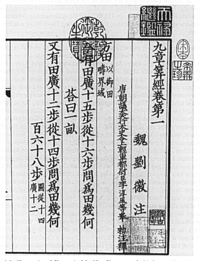 九章算經卷第一
魏劉徽注
唐朝議大夫行太史令上輕車都尉臣李淳風等奉敕注釋
方田以御田疇界域
有田廣十五步從十六步問爲田幾何
荅曰一畝
又有田廣十二步從十四步問爲田幾何
百六十八步圖從十四廣十二